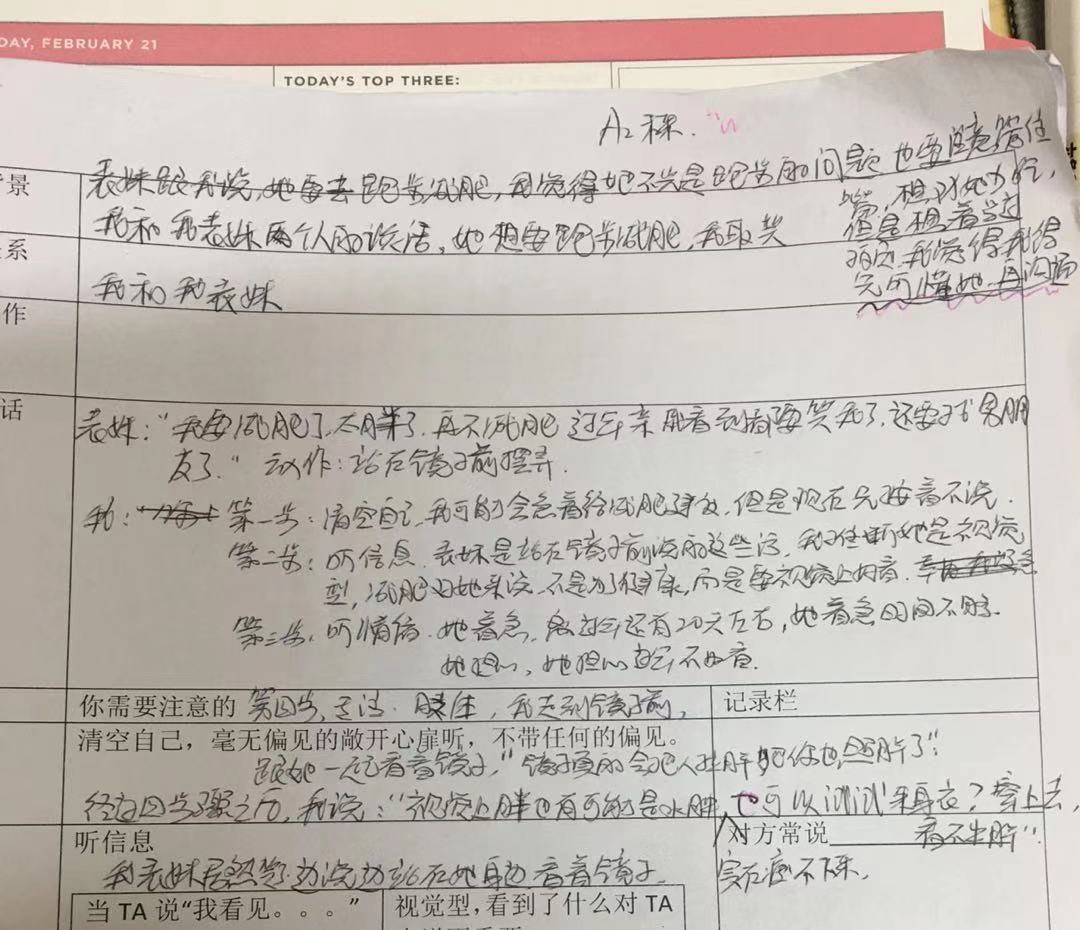 DAY, FEBRUARY 21
TODAY'S TOP THREE:
A2 课.
景
表妹跟我说,她要去跑步减肥,我觉得她不光是跑步的问题 也要
我和我表妹两个人的谈话,她想要跑步减肥,我取笑
但是想着
我觉得我得
先听懂她 再
系
我和我表妹
作
话
表妹:“我要减肥了,太胖了.再不减肥 过年亲朋看到都要笑我了.还要找男朋
友了.” 动作:站在镜子前摆弄.
我: 第一步:清空自己,我可能会急着给减肥建议,但是现在先按着不说.
第二步:听信息.表妹是站在镜子前说的这些话,我判断她是视觉
型,减肥对她来说,不是为了健康,而是要视觉上好看.
第三步:听情绪.她着急,离过年还有20天左右,她着急时间不够.
她担心,她担心过年不好看.
你需要注意的 第四步,手法. 肢体,我走到镜子前,
记录栏
清空自己,毫无偏见的敞开心扉听,不带任何的偏见。
跟她一起看着镜子,“镜子真的会把人 胖 把你也 胖了”.
经过四步骤之后,我说:“视觉上胖也有可能是水肿,也可以试试 穿上去,
听信息
对方常说
看不出胖”
我表妹居然 边说边站在她身边 看着镜子.
实在瘦不下来.
当 TA 说“我看见。。。”
视觉型,看到了什么对 TA